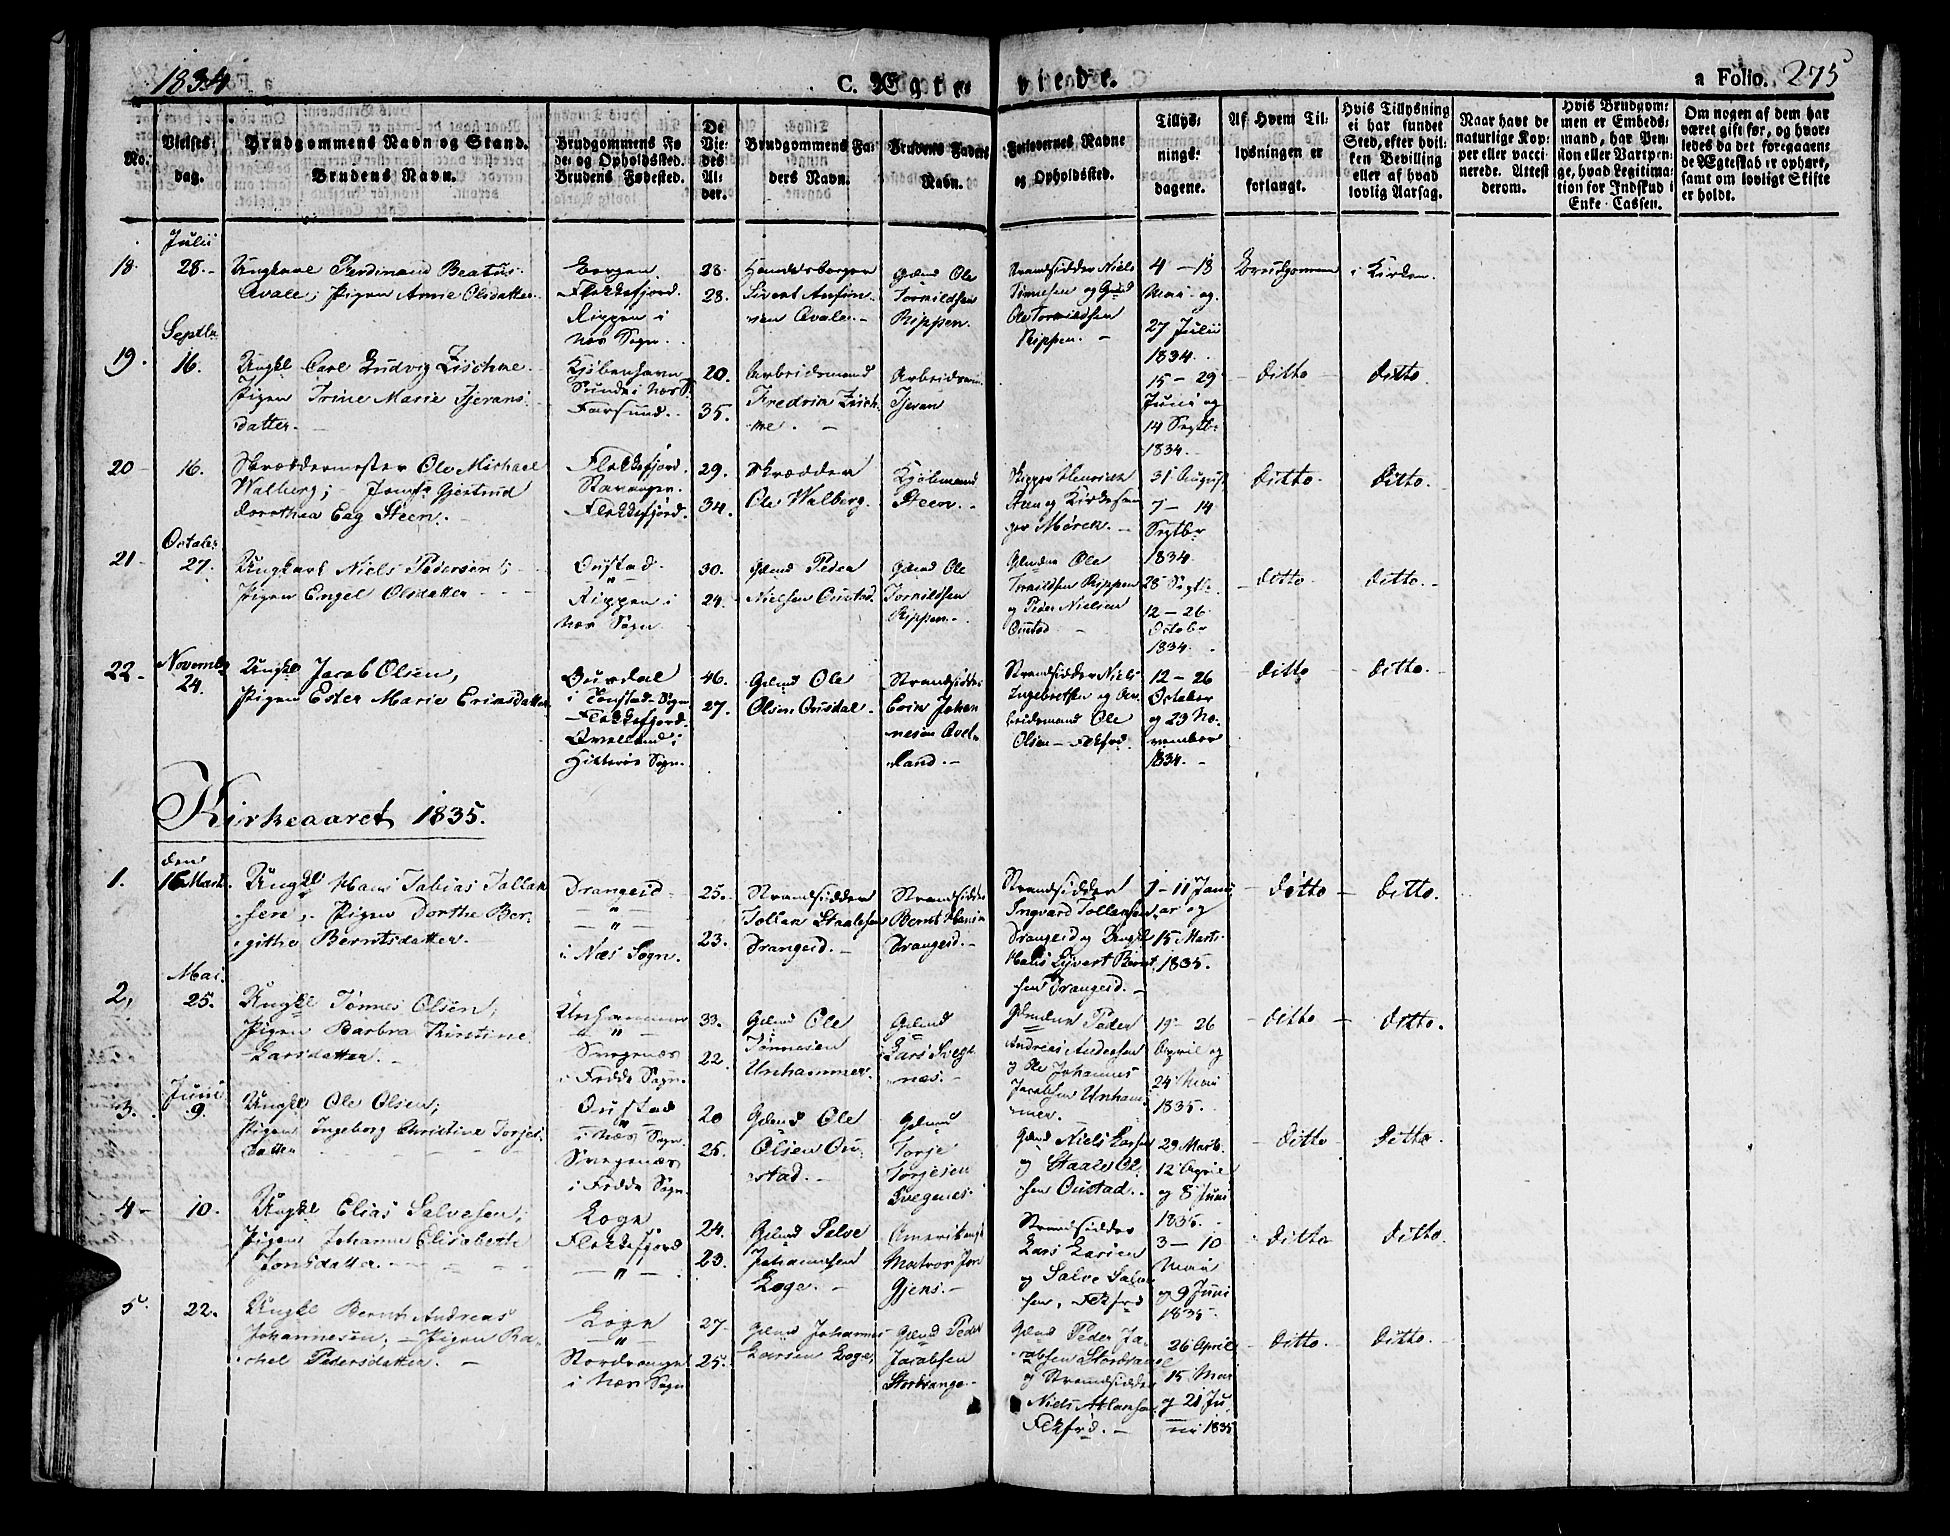 1834
C. Ægte- viede.
a Folio. 275
No.
Vielses-
dag.
Brudgommens Navn og Stand.
Brudens Navn.
Brudgommens Fø-
de- og Opholdssted.
Brudens Fødested.
De
Vie-
des
Al-
der.
Brudgommens Fa-
ders Navn.
Brudens Faders
Navn.
Forlovernes Navne
og Opholdssted.
Tillys-
nings-
dagene.
Af Hvem Til-
lysningen er
forlangt.
Hvis Tillysning
ei har fundet
Sted, efter hvil-
ken Bevilling
eller af hvad
lovlig Aarsag.
Naar havt de
naturlige Kop-
per eller vacci-
nerede. Attest
derom.
Hvis Brudgom-
men er Embeds-
mand, har Pen-
sion eller Vartpen-
ge, hvad Legitima-
tion for Indskud i
Enke-Cassen.
Om nogen af dem har
været gift før, og hvor-
ledes da det foregaaen-
de Ægteskab er ophørt,
samt om lovligt Skifte
er holdt.
18.
Julii
28.
Ungkarl Ferdinand Beatus
Avale; Pigen Anne Olsdatter
Bergen
Flekkefjord.
Rippen i
Næs Sogn.
28.
28.
Handelsborger
Sivert
Avale
Gaard Ole
Tornildsen
Rippen.
Strandsidder Niels
Tønnesen og Gmd
Ole Tornildsen
Rippen.
4 - 18
Mai og
27 Julii
1834.
Brudgommen
i Kirken.
19.
Septbr
16.
Ungkl Carl Ludvig Zischne
Pigen Trine Marie Tjerans-
datter.
Kjøbenhavn
Sunde i Næs S.
Farsund.
20.
35.
Arbeidsmand
Fredrik Zisch-
ne.
Arbeidsm
Tjeran
15 - 29
Juni og
14 Septbr
1834.
Ditto
Ditto.
20
16.
Skræddermester Ole Michael
Walberg; Jomfr Gjertrud
Dorothea Eeg Steen.
Flekkefjord.
Stavanger.
Flekkefjord.
29.
34.
Skrædder
Ole Walberg.
Kjøbmand
Steen.
Skipper Henrich
Steen og Kirkesan-
ger Mørch.
31 August
7 - 14
Septbr
1834
Ditto.
Ditto.
21
October
27.
Ungkarl Niels Pedersen;
Pigen Engel Olsdatter
Oustad
"
Rippen i
Næs Sogn
30.
24.
Gaard Peder
Nielsen Oustad.
Gaard Ole
Tornildsen
Rippen.
Gmder Ole
Tornildsen Rippen
og Peder Nielsen
Oustad
28 Septb.
12 - 26
October
1834.
Ditto.
Ditto.
22
Novembr
24.
Ungkl Jacob Olsen,
Pigen Ester Marie Ericsdatter
Ousdal
i Tonstad Sogn
Flekkefjord.
i
Hitterøe Sogn.
46.
27.
Gaard Ole
Olsen Ousdal
Strandsidder
Eric Johan-
nesen Avel-
land.
Strandsidder Niels
Ingebretsen og Ar-
beidsmand Ole
Olsen - Fekfrd.
12 - 26
October
og 23 No-
vember
1834.
Ditto
Ditto.
Kirkeaaret 1835.
1.
den
16 Marts.
Ungkl Hans Tobias Tollak-
sen; Pigen Dorthe Ber-
githe Berntsdatter.
Drangeid
"
"
i Næs Sogn.
25.
23.
Strandsidder
Tollak Staalesen
Drangeid.
Strandsidder
Bernt Hansen
Drangeid.
Strandsidder
Ingvard Tollaksen
Drangeid og Ungkl
Hans Sivert Bernt-
sen Drangeid.
1 - 11 Janu-
ar og
15 Marts
1835.
Ditto
Ditto.
2,
Mai.
25.
Ungkl Tønnes Olsen,
Pigen Barbra Kirstine
Larsdatter.
Unhammer
"
Svegenæs
i Fedde Sogn.
33.
22.
Gmd Ole
Tønnesen
Unhammer.
Gmd
Lars Sveg-
næs.
Gmdene Peder
Andreas Andersen
og Ole Johannes
Jacobsen Unham-
mer.
19 - 26
April og
24 Mai
1835.
Ditto
Ditto.
3.
Juni
9.
Ungkl Ole Olsen;
Pigen Ingeborg Christine Torjes-
datter
Oustad
"
i Næs Sogn.
Svegenæs
i Fedde Sogn.
20
25.
Gmd Ole
Olsen Ou-
stad.
Gmd
Torje
Torjesen
Svegenes.
Gmd Niels Larsen
og Staale Ol-
sen Oustad.
29 Marts.
12 April
og 8 Juni
1835.
Ditto
Ditto
4
10.
Ungkl Elias Salvesen;
Pigen Johanne Elisabeth
Jonsdatter.
Loge
Flekkefjord
"
24.
23.
Gmd Salve
Johannesen
Loge.
Matros Jon
Gjens.
Strandsidder
Lars Larsen
og Salve Salve-
sen, Fekfrd
3 - 10
Mai
og 9 Juni
1835.
Ditto
Ditto.
5.
22.
Ungkl Bernt Andreas
Johannesen; - Pigen Ra-
chel Pedersdatter.
Loge
"
Stordrange
i Næs Sogn
27
25.
Gmd Johannes
Larsen Loge,
Gmd Peder
Jacobsen
Stordrange.
Gmd Peder Ja-
cobsen Stordrange
og Strandsidder
Niels Atlaksen
Fekfrd.
26 April
15 Mai
og 21 Ju-
ni 1835
Ditto.
Ditto.